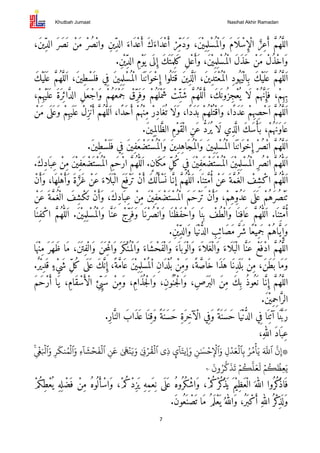 Khutbah Jumaat
Nashat Akhir Ramadan
اَللَّهُمَّ أَعِزَّ الْإِسْلَامَ وَالْمُسْلِمِيْنَ، وَدَمِّرْ أَعْدَاءَكَ أَعْدَاءَ الدِّيْنِ وَانْصُرْ مَنْ نَصَرَ الدِّيْنَ،
وَاخْذُلْ مَنْ خَذَلَ الْمُسْلِمِيْنَ، وَأَعْلِ كَلِمَتَكَ إِلَى يَوْمِ الدِّيْنِ.
اَللَّهُمَّ عَلَيْكَ بِالْيَهُوْدِ الْمُعْتَدِيْنَ، الَّذِيْنَ قَتَلُوا إِخْوَانَنَا الْمُسْلِمِيْنَ فِيْ فِلِسْطِيْنَ، اَللَّهُمَّ عَلَيْكَ
بِهِمْ، فَإِنَّهُمْ لَا يُعْجِزُوْنَكَ، اَللَّهُمَّ شَتِّتْ شَمْلَهُمْ وَفَرِّقْ جَمْعَهُمْ وَاجْعَلِ الدَّائِرَةَ عَلَيْهِمْ،
اَللَّهُمَّ أَحْصِهِمْ عَدَدًا، وَاقْتُلْهُمْ بَدَدًا، وَلَا تُغَادِرْ مِنْهُمْ أَحَدًا، اَللَّهُمَّ أَنْزِلْ عَلَيْهِمْ وَعَلَى مَنْ
عَاوَنَهُمْ، بَأْسَكَ الَّذِي لَا يُرَدُّ عَنِ الْقَوْمِ الظَّالِمِيْنَ.
اَللَّهُمَّ انْصُرْ إِخْوَانَنَا الْمُسْلِمِيْنَ وَالْمُجَاهِدِيْنَ وَالْمُسْتَضْعَفِيْنَ فِيْ فِلِسْطِيْنَ.
اَللَّهُمَّ انْصُرِ الْمُسْلِمِيْنَ الْمُسْتَضْعَفِيْنَ فِيْ كُلِّ مَكَانٍ. اَللَّهُمَّ ارْحَمِ الْمُسْتَضْعَفِيْنَ مِنْ عِبَادِكَ.
اَللَّهُمَّ اكْشِفِ الْغُمَّةَ عَنْ أُمَّتِنَا. اَللَّهُمَّ إِنَّا نَسْأَلُكَ أَنْ تَرْفَعَ الْبَلَاءَ، عَنْ غَزَّةَ وَأَهْلِهَا، وَأَنْ
تَنْصُرَهُمْ عَلَى عَدُوِّهِمْ، وَأَنْ تَرْحَمَ الْمُسْتَضْعَفِيْنَ مِنْ عِبَادِكَ، وَأَنْ تَكْشِفَ الْغُمَّةَ عَنْ
أُمَّتِنَا. اَللَّهُمَّ عَافِنَا وَالْطُفْ بِنَا وَاحْفَظْنَا وَانْصُرْنَا وَفَرِّجْ عَنَّا وَالْمُسْلِمِيْنَ. اَللَّهُمَّ اكْفِنَا
وَإِيَّاهُمْ جَمِيْعًا شَرَّ مَصَائِبِ الدُّنْيَا وَالدِّيْنِ.
اَللَّهُمَّ ادْفَعْ عَنَّا الْبَلَاءَ، وَالْغَلَاءَ، وَالْوَبَاءَ، وَالْفَحْشَاءَ، وَالْمُنْكَرَ وَالْمِحَنَ، وَالْفِتَنَ، مَا ظَهَرَ مِنْهَا
وَمَا بَطَنَ، مِنْ بَلَدِنَا هَذَا خَاصَّةً، وَمِنْ بُلْدَانِ الْمُسْلِمِيْنَ عَامَّةً، إِنَّكَ عَلَى كُلِّ شَيْءٍ قَدِيْرٌ.
اَللَّهُمَّ إِنَّا نَعُوْذُ بِكَ مِنَ الْبَرَصِ، وَالْجُنُوْنِ، وَالْجُذَامِ، وَمِنْ سَيِّئِ الْأَسْقَامِ، يَا أَرْحَمَ
الرَّاحِمِيْنَ.
رَبَّنَا آتِنَا فِي الدُّنْيَا حَسَنَةً وَفِي الْآخِرَةِ حَسَنَةً وَقِنَا عَذَابَ النَّارِ.
عِبَادَ اللهِ،
۞إِنَّ ٱللَّهَ يَأْمُرُ بِٱلْعَدْلِ وَٱلْإِحْسَٰنِ وَإِيتَآيِٕ ذِى ٱلْقُرْبَىٰ وَيَنْهَىٰ عَنِ ٱلْفَحْشَآءِ وَٱلْمُنكَرِ وَٱلْبَغْىِ ۚ
يَعِظُكُمْ لَعَلَّكُمْ تَذَكَّرُونَ ۝
فَاذْكُرُوا اللهَ الْعَظِيْمَ يَذْكُرْكُمْ، وَاشْكُرُوْهُ عَلَى نِعَمِهِ يَزِدْكُمْ، وَاسْأَلُوْهُ مِنْ فَضْلِهِ يُعْطِكُمْ
وَلَذِكْرُ اللهِ أَكْبَرُ، وَاللهُ يَعْلَمُ مَا تَصْنَعُوْنَ.
7